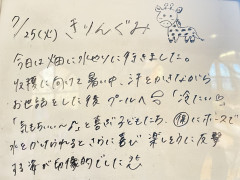 7/25(火) きりんぐみ
今日は畑に水やりに行きました。
収穫に向けて暑い中、汗をかきながら
お世話をした後プールへ 「冷たい」
「気もちいい〜」と喜ぶ子どもたち。 にホースで
水をかけられるとさらに喜び楽しそうに反撃
する姿が印象的でした